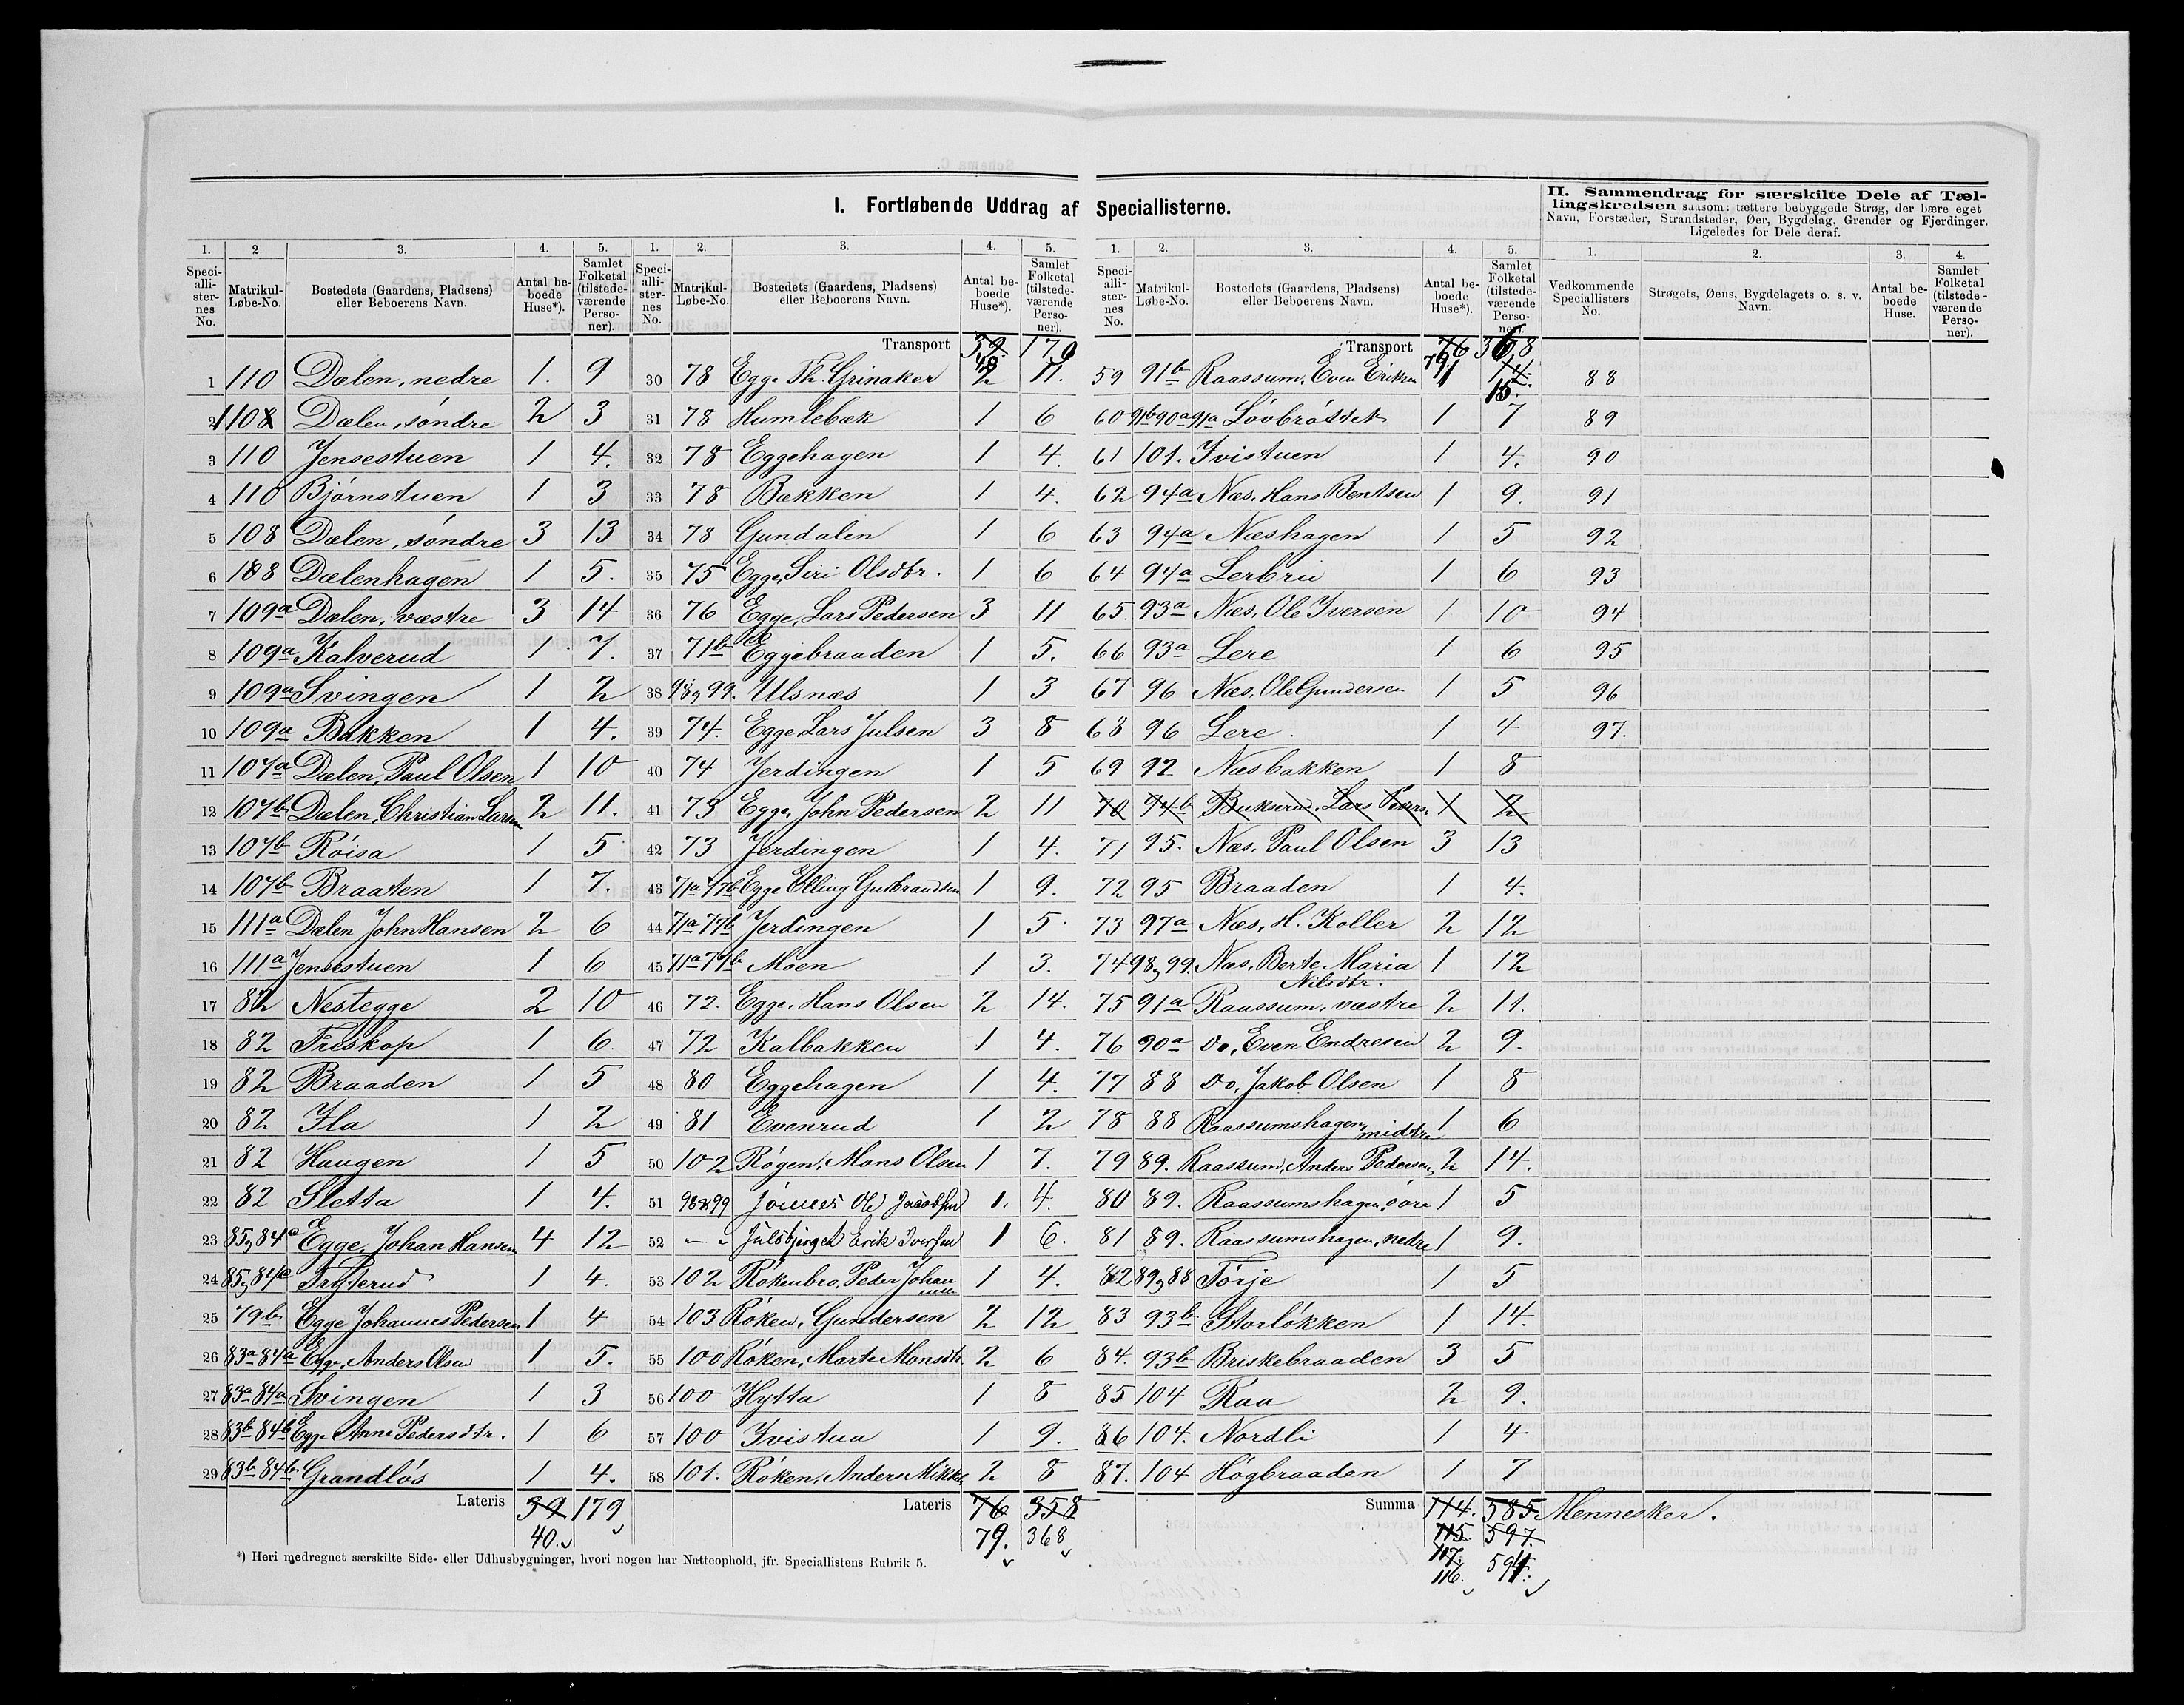 I. Fortløbende Uddrag af Speciallisterne.
II. Sammendrag for særskilte Dele af Tællingskredsen saasom: tættere bebyggede Strøg, der bære eget
Navn, Forstæder, Strandsteder, Øer, Bygdelag, Grender og Fjerdinger.
Ligeledes for Dele deraf.
1. 2 3. 4. 5.
Speciallisternes No. Matrikul-Løbe-No. Bostedets (Gaardens, Pladsens) eller Beboerens Navn. Antal beboede Huse*). Samlet Folketal (tilstedeværende Personer).
1 110 Dælen, nedre 1. 9
2 110 Dælen, søndre 2 3
3 110 Jensestuen 1 4.
4 110 Bjørnstuen 1 3
5 108 Dælen, søndre 3 13
6 108 Dælenhagen 1 5.
7 109a Dælen, væstre 3 14
8 109a Kalverud 1 7.
9 109a Svingen 1 2
10 109a Bakken 1 4.
11 107a Dælen, Paul Olsen 1 10
12 107b Dælen, Christian Larsen 2 11.
13 107b Röisa 1 5
14 107b Braaten 1 7.
15 111a Dælen John Hansen 2 6
16 111a Jensestuen 1 6
17 82 Nestegge 2 10
18 82 Friskop 1 6.
19 82 Braaden 1 5
20 82 Ila 1 2
21 82 Haugen 1 5
22 82 Sletta 1 4.
23 85, 84c Egge, Johan Hansen 4 12
24 85, 84c Tryterud 1 4.
25 79b Egge Johannes Pedersen 1 4
26 83a 84a Egge, Anders Olsen 1 5.
27 83a 84a Svingen 1 3
28 83b 84b Egge Anne Pedersdtr. 1 6
29 83b 84b Grandlös 1 4.
Lateris 39 179
40.
1. 2. 3. 4. 5.
Speciallisternes No. Matrikul-Løbe-No. Bostedets (Gaardens, Pladsens) eller Beboerens Navn. Antal beboede Huse*). Samlet Folketal (tilstedeværende Personer).
Transport 39. 179
40
30 78 Egge Th. Grinaker 2 11.
31 78 Humlebæk 1 6
32 78 Eggehagen 1 4.
33 78 Bækken 1 4.
34 78 Gundalen 1 6
35 75 Egge, Siri Olsdtr. 1 6
36 76 Egge, Lars Pedersen 3 11
37 71b Eggebraaden 1 5.
38 98, 99. Ulsnæs 1 3
39 74. Egge Lars Julsen 3 8
40 74 Jerdingen 1 5
41 73 Egge, John Pedersen 2 11
42 73 Jerdingen 1 4.
43 71a 77b Egge Elling Gulbrandsen 1 9.
44 71a 77b Jerdingen 1 5
45 71a 77b Moen 1 3.
46 72. Egge, Hans Olsen 2 14.
47 72 Kalbakken 1 4.
48 80 Eggehagen 1 4.
49 81 Evenrud 1 2
50 102 Røgen, Mons Olsen 1 7.
51 98 & 99 Ole Jacobsen 1. 4.
52 " " Julsbjerget Erik Iversen 1 6.
53 102 Rökenbro, Peder Johan 1 4.
54 103 Röken, Gundersen 2 12
55 100 Röken, Marte Monsdtr. 2 6
56 100 Hytta 1 8
57 100 Ivistua 1 9.
58 101. Röken, Anders Mikkel 2 8
Lateris 76 358
79. 368
1. 2. 3. 4. 5.
Speciallisternes No. Matrikul-Løbe-No. Bostedets (Gaardens, Pladsens) eller Beboerens Navn. Antal beboede Huse*). Samlet Folketal (tilstedeværende Personer).
Transport 76 368
79
59 91b Raassum, Even Eriksen 1 14.
15.
60 91b 90a 91a Lövbråttet 1 7
61 101. Ivistuen 1 4.
62 94a Næs, Hans Bentsen 1 9.
63 94a Næshagen 1 5
64 94a Lerbrii 1 6
65. 93a Næs, Ole Iversen 1 10
66 93a Lere 1 6
67 96 Næs, Ole Gundersen 1 5
68 96 Lere. 1 4
69 92 Næsbakken 1 8
70 94b Bukserud, Lars 1 2
71 95. Næs, Paul Olsen 3 13
72 95 Braaden 1 4.
73 97a Næs, H. Koller 2 12
74 98, 99. Næs, Berte Maria 1 12
Nilsdtr.
75 91a Raassum, væstre 2 11.
76 90a Do, Even Endresen 2 9.
77 88 Do, Jakob Olsen 1 8
78 88 Raassumshagen, midtre 1 6
79 89. Raassum, Anders Pedersen 2 14.
80 89. Raassumshagen, övre 1 5
81 89. Raassumshagen, nedre 1 9.
82 89, 88 Törje 1 5
83 93b Storlökken 1 14.
84. 93b Briskebraaden 3 5
85 104 Raa 2 9.
86 104. Nordli 1 4
87. 104 Högbraaden 1 7
Summa 114. 585 Mennesker.
115 597.
117. 594.
116.
1. 2. 3. 4.
Vedkommende Speciallisters No. Strøgets, Øens, Bygdelagets o. s. v. Navn. Antal beboede Huse. Samlet Folketal (tilstedeværende Personer).
88
89
90
91
92
93
94
95
96
97.
*) Heri medregnet særskilte Side- eller Udhusbygninger, hvori nogen har Natteophold, jfr. Speciallistens Rubrik 5.